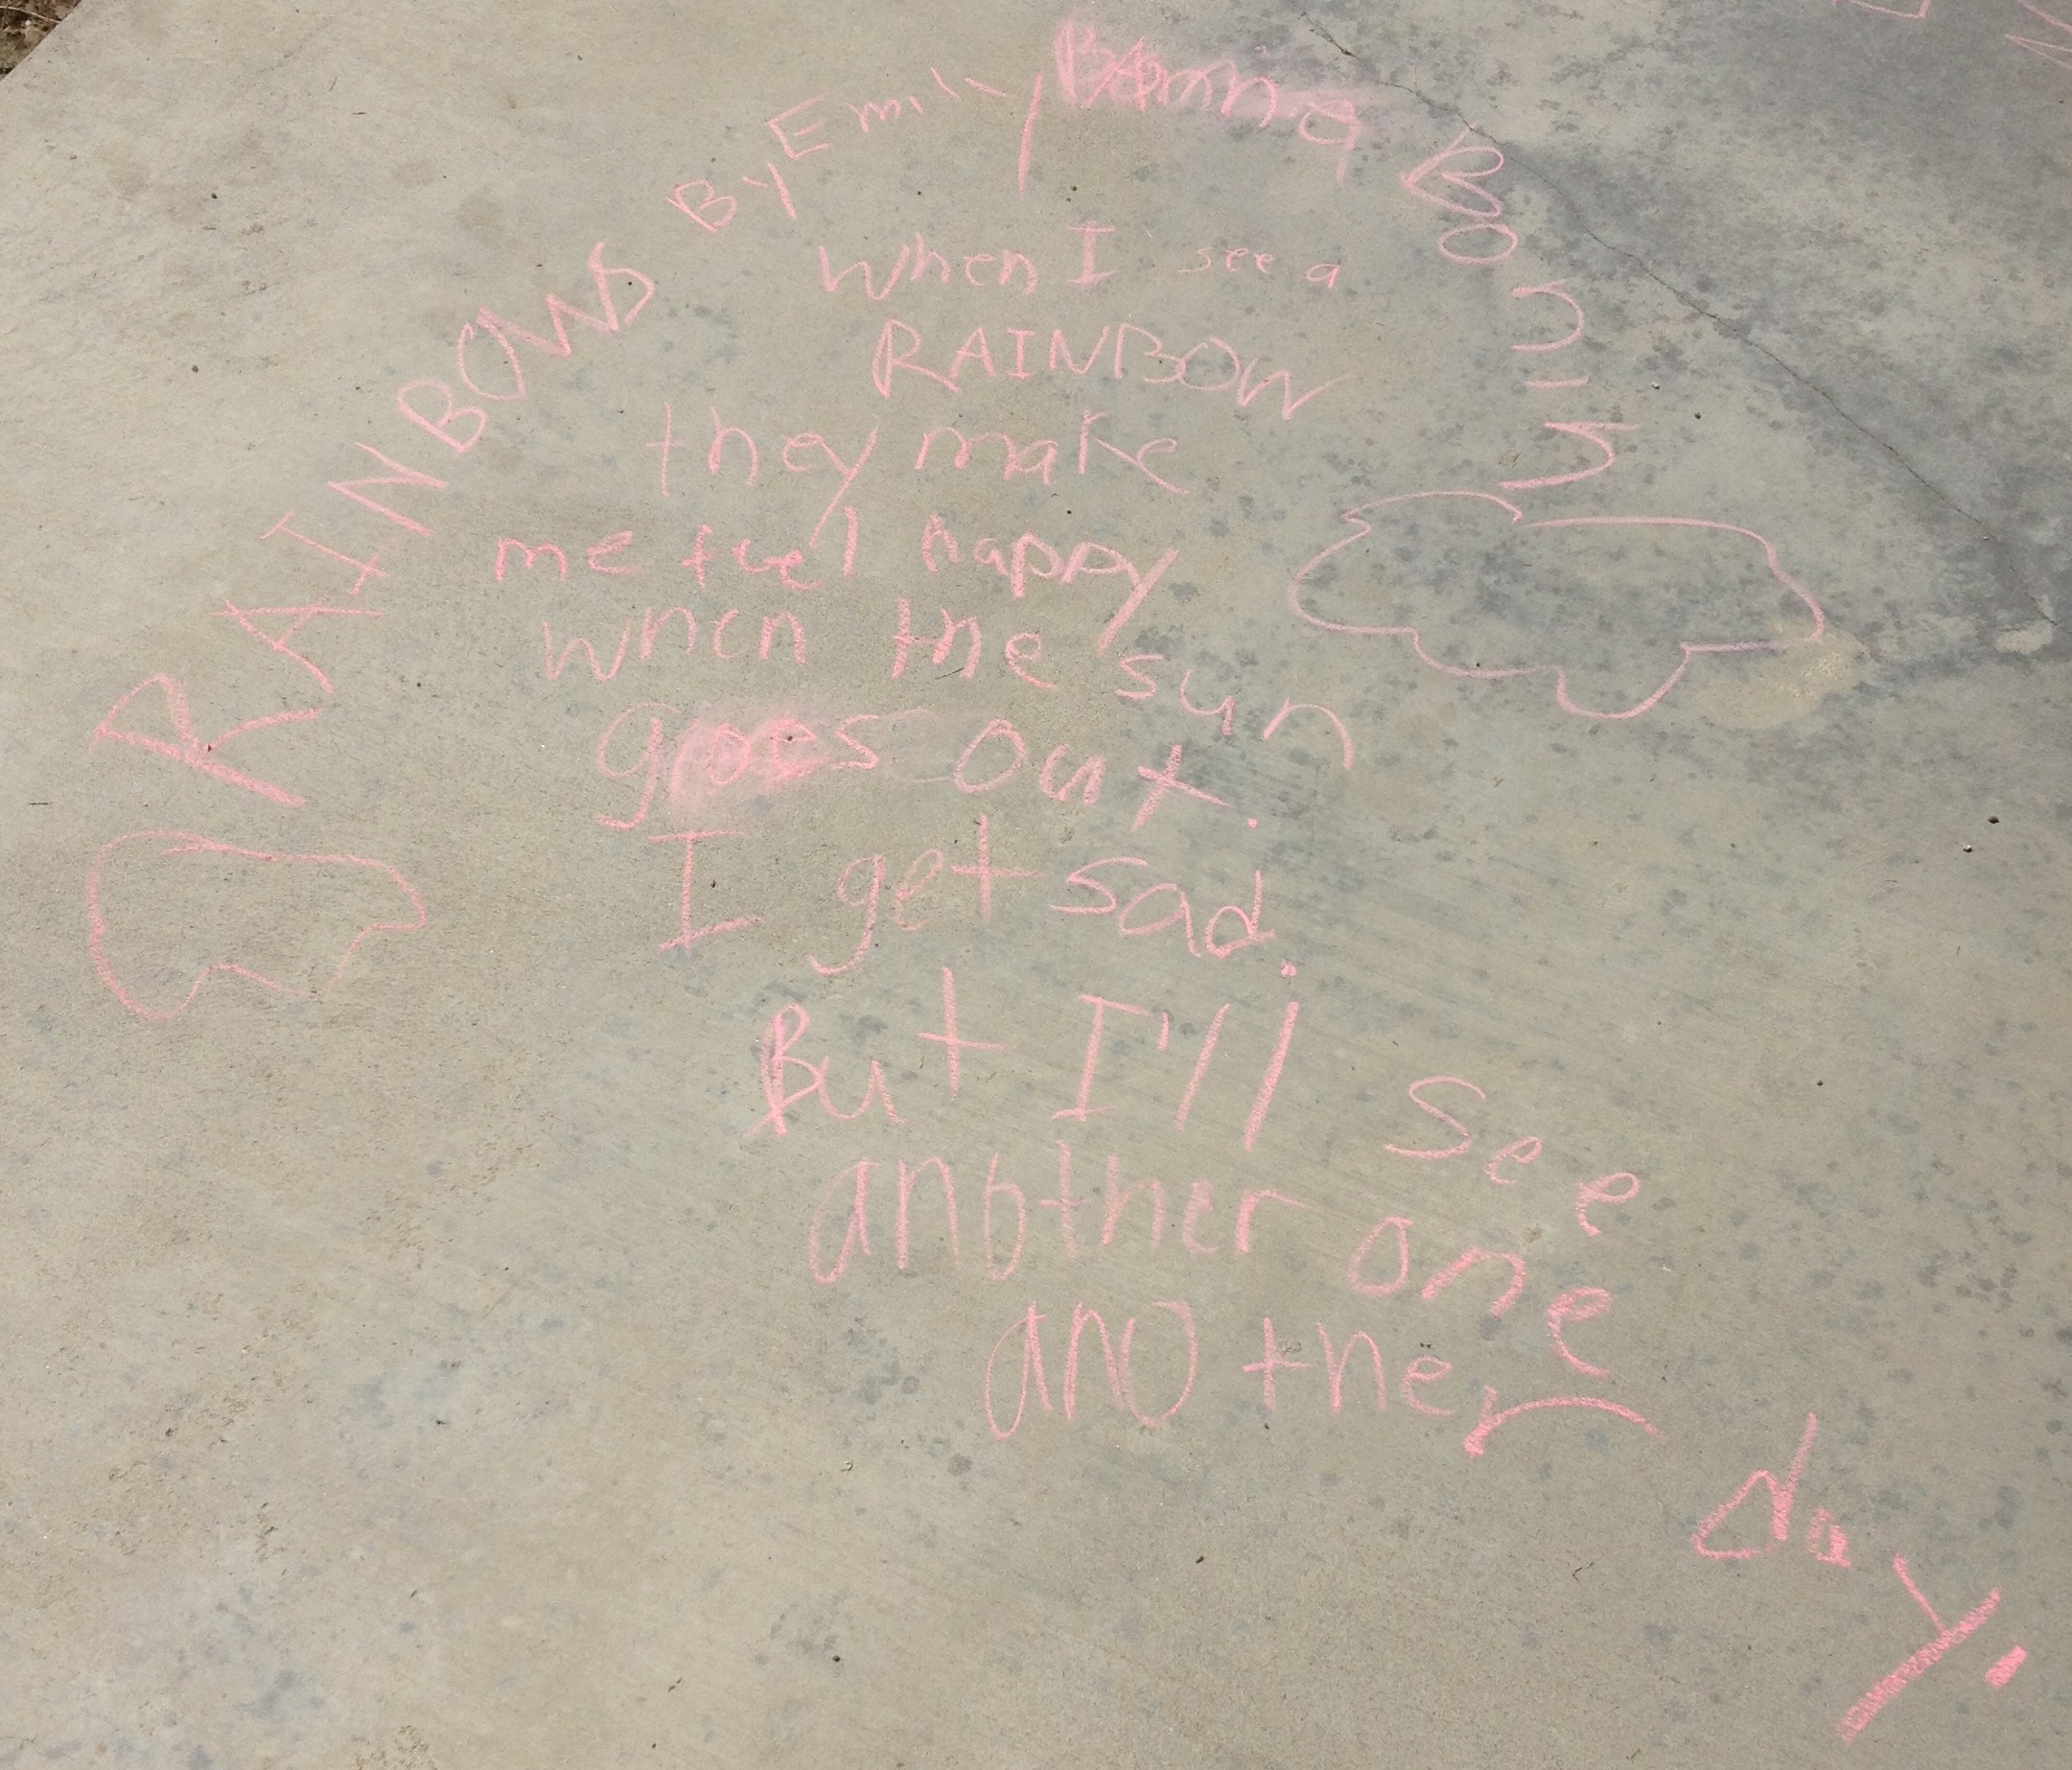 RAINBOWS By Emily
when I see a
RAINBOW
they make
me feel happy
when the sun
goes out.
I get sad.
But I'll see
another one
another
day.